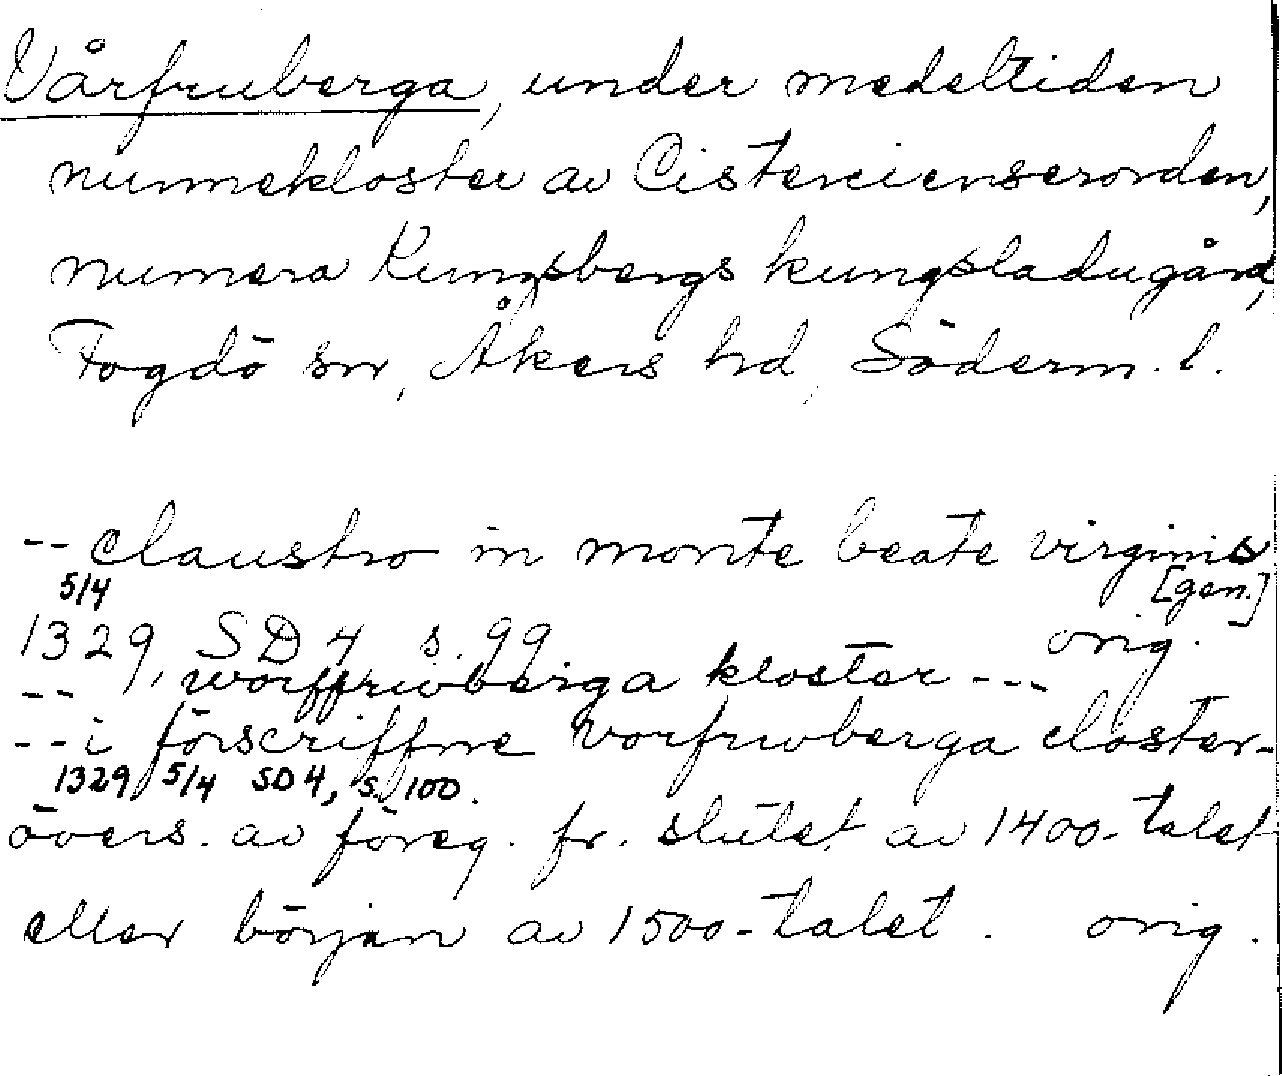 Vårfruberga, under medeltiden
nunnekloster av Cistercienserorden,
numera Kungsbergs kungsladugård,
Fogdö sn, Åkers hd, Söderm. l.
-- claustro in monte beate virginis
5/4 [gen.]
1329, SD 4 s. 99 orig.
-- worffrwberga kloster ---
-- i förscriffne vorfrwberga closter-
1329 5/4 SD 4, s. 100.
övers. av föreg. fr. slutet av 1400-talet
eller början av 1500-talet. orig.